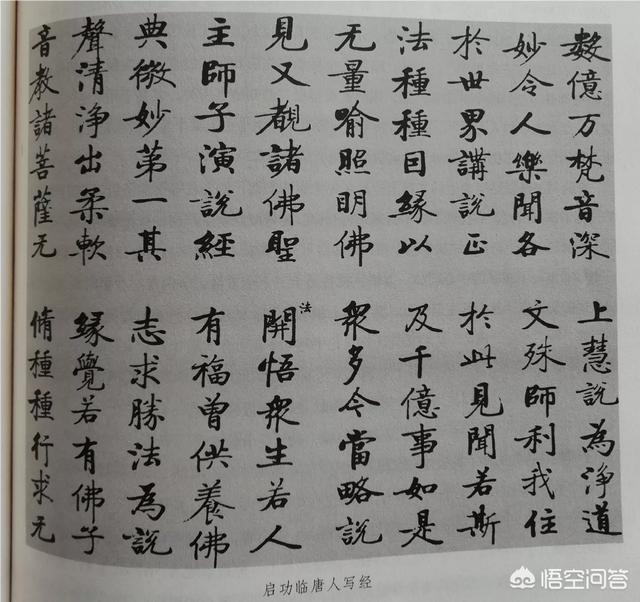 見又覩諸佛聖
主師子演說經
典微妙第一其
聲清淨出柔軟
音教諸菩薩无
數億万梵音深
妙令人樂聞各
於世界講說正
法種種因緣以
无量喻照明佛
法
開悟衆生若人
有福曾供養佛
志求勝法為說
緣覺若有佛子
脩種種行求无
上慧說為淨道
文殊師利我住
於此見聞若斯
及千億事如是
衆多今當略說
启功临唐人写经
悟空问答